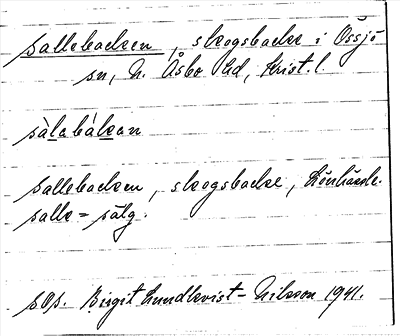 sallebacken, skogsbacke i Össjö
sn, N. Åsbo hd, Krist. l.
sàlabákan
sallebacken, skogsbacke, Lönhärde.
salle = sälg.
sOp. Birgit Lundkvist-Nilsson 1941.